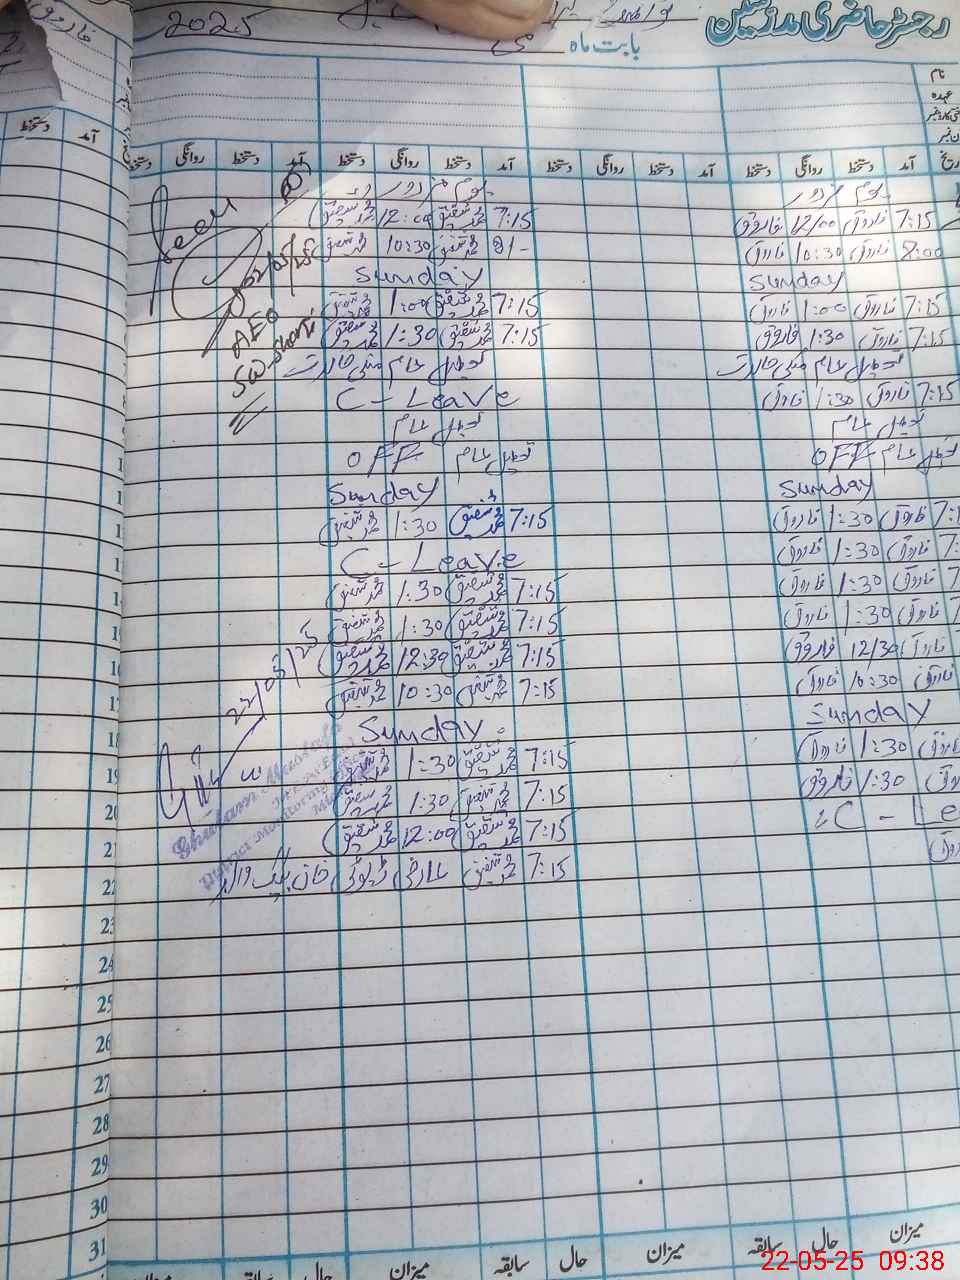 رجسٹر حاضری مدرسین
بابت ماہ مئی 2025
نام
عہدہ
آمد دستخط روانگی دستخط آمد دستخط روانگی دستخط آمد دستخط روانگی دستخط آمد دستخط روانگی دستخط
یوم مزدور یوم مزدور
7:15 فاروق 12/00 فاروق 7:15 محمد شفیق 12:00 محمد شفیق
8:00 فاروق 10:30 فاروق 8/- محمد شفیق 10:30 محمد شفیق
Sunday Sunday
7:15 فاروق 1:00 فاروق 7:15 محمد شفیق 1:00 محمد شفیق
7:15 فاروق 1:30 فاروق 7:15 محمد شفیق 1:30 محمد شفیق
تعطیل عام تعطیل عام
7:15 فاروق 1:30 فاروق C - Leave
تعطیل عام تعطیل عام
تعطیل عام OFF تعطیل عام OFF
Sunday Sunday
فاروق 1:30 فاروق 7:15 محمد شفیق 1:30 محمد شفیق
فاروق 1:30 فاروق C - Leave
فاروق 1:30 فاروق 7:15 محمد شفیق 1:30 محمد شفیق
فاروق 1:30 فاروق 7:15 محمد شفیق 1:30 محمد شفیق
فاروق 12/30 فاروق 7:15 محمد شفیق 12:30 محمد شفیق
فاروق 10:30 فاروق 7:15 محمد شفیق 10:30 محمد شفیق
Sunday Sunday 18
فاروق 1:30 فاروق 7:15 محمد شفیق 1:30 محمد شفیق 19
1:30 فاروق 7:15 محمد شفیق 1:30 محمد شفیق 20
C - Le 7:15 محمد شفیق 12:00 محمد شفیق 21
7:15 محمد شفیق 22
23
24
25
26
27
28
29
30
31
میزان حال سابقہ میزان حال سابقہ میزان حال سابقہ میزان
Seen
02/05/25
AEO
22/05/25
Ghulam Mustafa
22-05-25 09:38